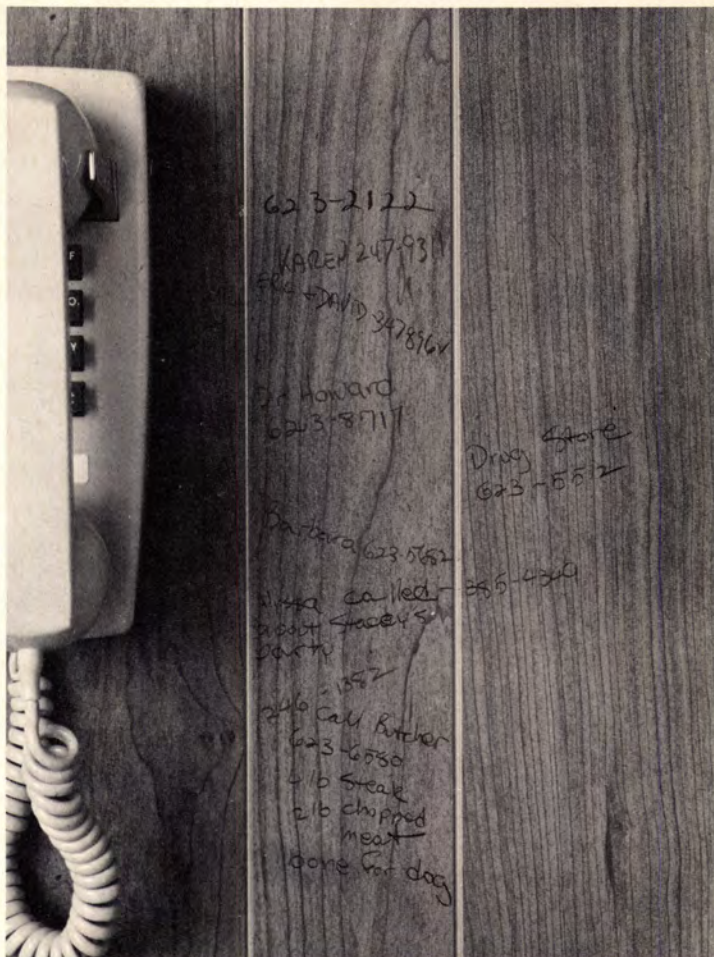 623-2122
KAREN 247-9311
+DAVID 347896
Dr Howard
623-8717
Drug Store
623-5512
Barbara 623-5682
called - 385-4349
about Stacey's
party
246-1382
Call Butcher
623-6580
4 lb Steak
2 lb chopped
meat
bone for dog